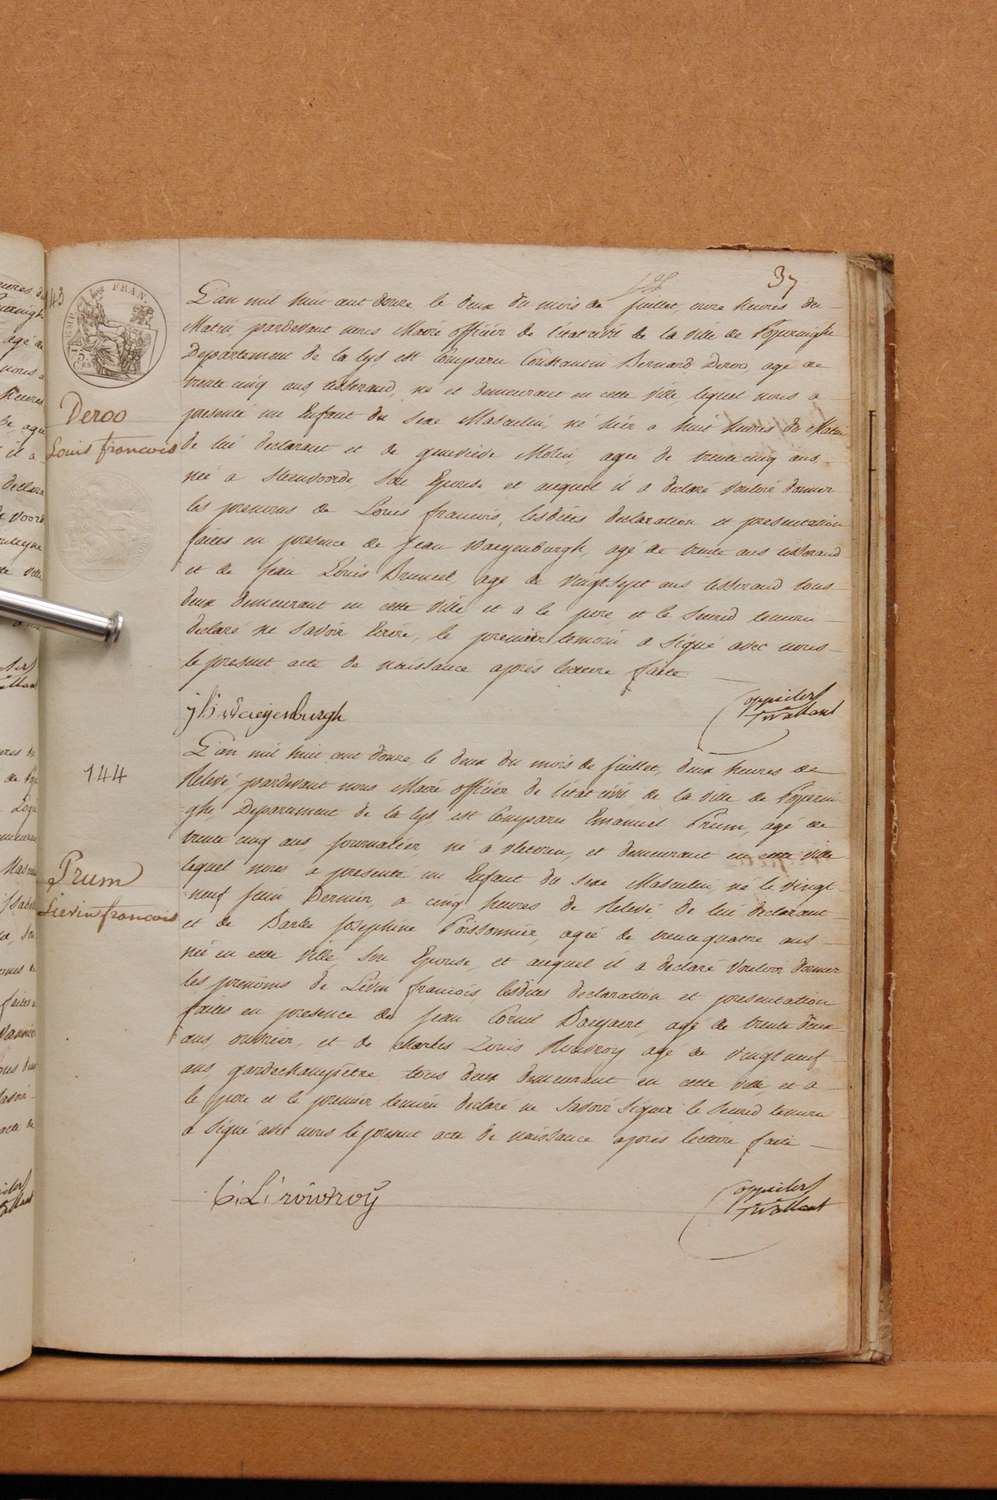 37
143
Deroo
Louis francois
L'an mil huit cent douze le deux du mois de juillet, onze heures du
Matin pardevant nous Maire officier de l'état civil de la ville de Poperinghe
Departement de la lys est Comparu Constantin Bernard Deroo, agé de
trente cinq ans tisserand, né et demeurant en cette ville, lequel nous a
presenté un Enfant du sexe Masculin, né hier a huit heures du Matin
de lui declarant et de genevieve Molin, agée de trente cinq ans,
née a Steenvoorde Son Epouse et auquel il a declaré vouloir donner
les prenoms de Louis francois, lesdites declaration et presentation
faites en presence de Jean Waegenburgh, agé de trente ans tisserand
et de Jean Louis Bruneel, agé de vingt sept ans tisserand tous
deux demeurant en cette ville et a le pere et le second temoin
declaré ne savoir Ecrire, le premier temoin a signé avec nous
le present acte de naissance après lecture faite
j b waegenburgh
144
Prum
Lievin francois
L'an mil huit cent douze le deux du mois de juillet, deux heures de
Relevé, pardevant nous Maire officier de l'état civil de la ville de Poperin
ghe, Departement de la lys est Comparu Emanuel Prum, agé de
trente cinq ans journalier, né a vleteren, et demeurant en cette ville
lequel nous a presenté un Enfant du sexe Masculin, né le vingt
neuf Juin Dernier, a cinq heures de Relevé de lui declarant
et de Barbe Josephine Poissonnier, agée de trente quatre ans
née en cette ville Son Epouse, et auquel il a declaré vouloir donner
les prenoms de Lievin francois lesdites declaration et presentation
faites en presence de Jean Cornil agé de trente deux
ans, ouvrier, et de charles Louis Rouvroy agé de vingt neuf
ans gardechampetre tous deux demeurant en cette ville, et a
le pere et le premier temoin declaré ne Savoir Signer le second temoin
a Signé avec nous le present acte de naissance après lecture faite
C: L: rouvroy